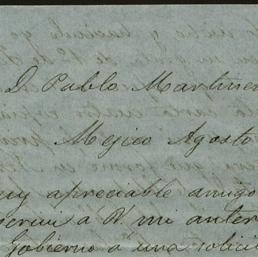 D. Pablo Martine
Mejico Agosto
uy apreciable amigo
scrivi á V. mi anter
Gobierno á una solici